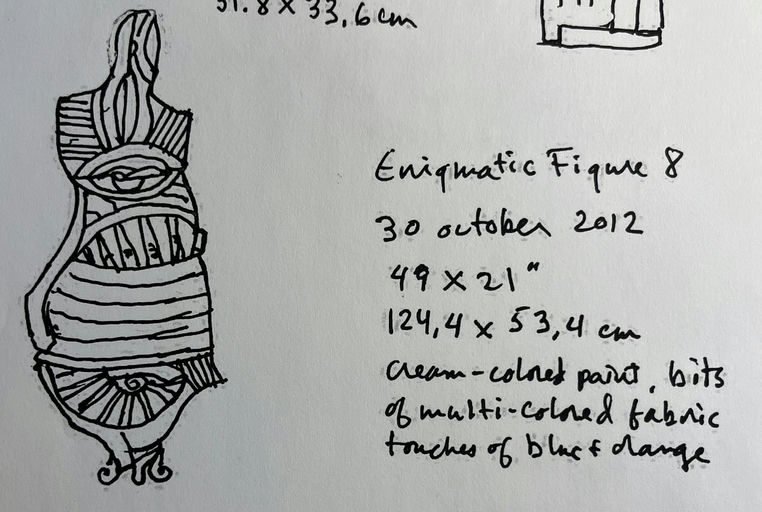 31.8 x 33,6 cm
Enigmatic Figure 8
30 october 2012
49 x 21"
124,4 x 53,4 cm
cream-colored paint, bits
of multi-colored fabric
touches of blue & orange